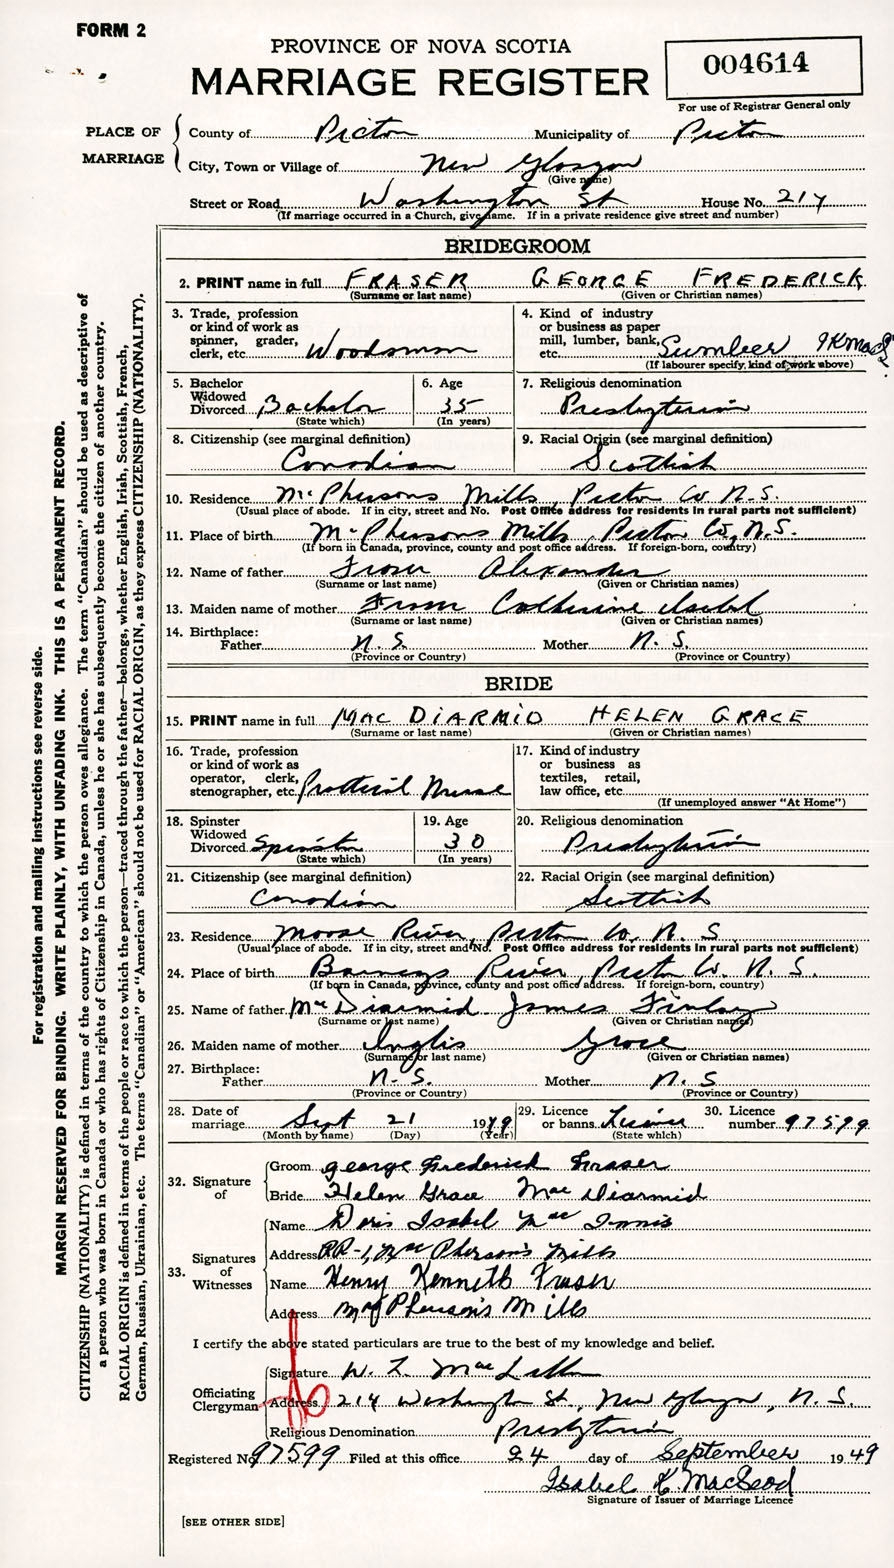 FORM 2
PROVINCE OF NOVA SCOTIA
MARRIAGE REGISTER
004614
For use of Registrar General only
PLACE OF MARRIAGE
County of Pictou Municipality of Pictou
City, Town or Village of New Glasgow
(Give name)
Street or Road Washington St House No. 217
(If marriage occurred in a Church, give name. If in a private residence give street and number)
BRIDEGROOM
2. PRINT name in full FRASER GEORGE FREDERICK
(Surname or last name) (Given or Christian names)
3. Trade, profession or kind of work as spinner, grader, clerk, etc. Woodsman
4. Kind of industry or business as paper mill, lumber, bank, etc. Lumber
(If labourer specify kind of work above)
5. Bachelor Widowed Divorced Bachelor
(State which)
6. Age 35
(In years)
7. Religious denomination
Presbyterian
8. Citizenship (see marginal definition)
Canadian
9. Racial Origin (see marginal definition)
Scottish
10. Residence McPhersons Mills, Pictou Co N.S.
(Usual place of abode. If in city, street and No. Post Office address for residents in rural parts not sufficient)
11. Place of birth McPhersons Mills, Pictou Co, N.S.
(If born in Canada, province, county and post office address. If foreign-born, country)
12. Name of father Fraser Alexander
(Surname or last name) (Given or Christian names)
13. Maiden name of mother Catherine Isabel
(Surname or last name) (Given or Christian names)
14. Birthplace:
Father N.S. Mother N.S.
(Province or Country) (Province or Country)
BRIDE
15. PRINT name in full MAC DIARMID HELEN GRACE
(Surname or last name) (Given or Christian names)
16. Trade, profession or kind of work as operator, clerk, stenographer, etc. Practical Nurse
17. Kind of industry or business as textiles, retail, law office, etc
(If unemployed answer "At Home")
18. Spinster Widowed Divorced Spinster
(State which)
19. Age 30
(In years)
20. Religious denomination
Presbyterian
21. Citizenship (see marginal definition)
Canadian
22. Racial Origin (see marginal definition)
Scottish
23. Residence Moose River, Pictou Co. N.S
(Usual place of abode. If in city, street and No. Post Office address for residents in rural parts not sufficient)
24. Place of birth Barneys River, Pictou Co. N.S.
(If born in Canada, province, county and post office address. If foreign-born, country)
25. Name of father MacDiarmid James Finlay
(Surname or last name) (Given or Christian names)
26. Maiden name of mother Inglis Grace
(Surname or last name) (Given or Christian names)
27. Birthplace:
Father N.S. Mother N.S
(Province or Country) (Province or Country)
28. Date of marriage Sept 21 1949
(Month by name) (Day) (Year)
29. Licence or banns License
(State which)
30. Licence number 97599
32. Signature of
Groom George Frederick Fraser
Bride Helen Grace MacDiarmid
33. Signatures of Witnesses
Name Doris Isabel MacInnis
Address RR-1, MacPherson's Mills
Name Henry Kenneth Fraser
Address MacPherson's Mills
I certify the above stated particulars are true to the best of my knowledge and belief.
Officiating Clergyman
Signature W. L. Mac
Address 214 Washington St., New Glasgow, N.S.
Religious Denomination Presbyterian
Registered No. 97599 Filed at this office 24 day of September 1949
Isabel K MacLeod
Signature of Issuer of Marriage Licence
[SEE OTHER SIDE]
For registration and mailing instructions see reverse side.
MARGIN RESERVED FOR BINDING. WRITE PLAINLY, WITH UNFADING INK. THIS IS A PERMANENT RECORD.
CITIZENSHIP (NATIONALITY) is defined in terms of the country to which the person owes allegiance. The term "Canadian" should be used as descriptive of
a person who was born in Canada or who has rights of Citizenship in Canada, unless he or she has subsequently become the citizen of another country.
RACIAL ORIGIN is defined in terms of the people or race to which the person—traced through the father—belongs, whether English, Irish, Scottish, French,
German, Russian, Ukrainian, etc. The terms "Canadian" or "American" should not be used for RACIAL ORIGIN, as they express CITIZENSHIP (NATIONALITY).